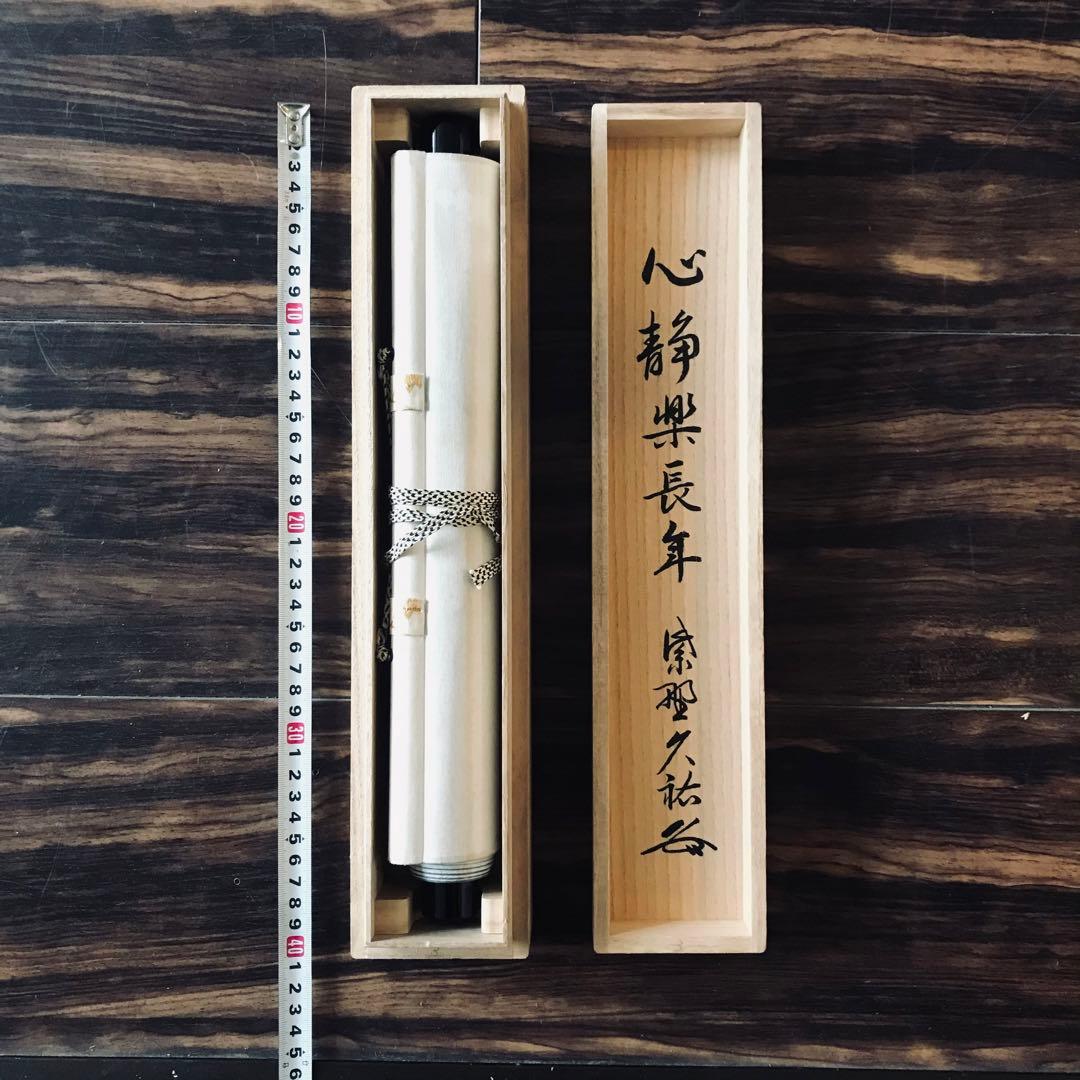 3 4 5 6 7 8 9 10 1 2 3 4 5 6 7 8 9 20 1 2 3 4 5 6 7 8 9 30 1 2 3 4 5 6 7 8 9 40 1 2 3 4 5 6
心静楽長年 紫野久祐